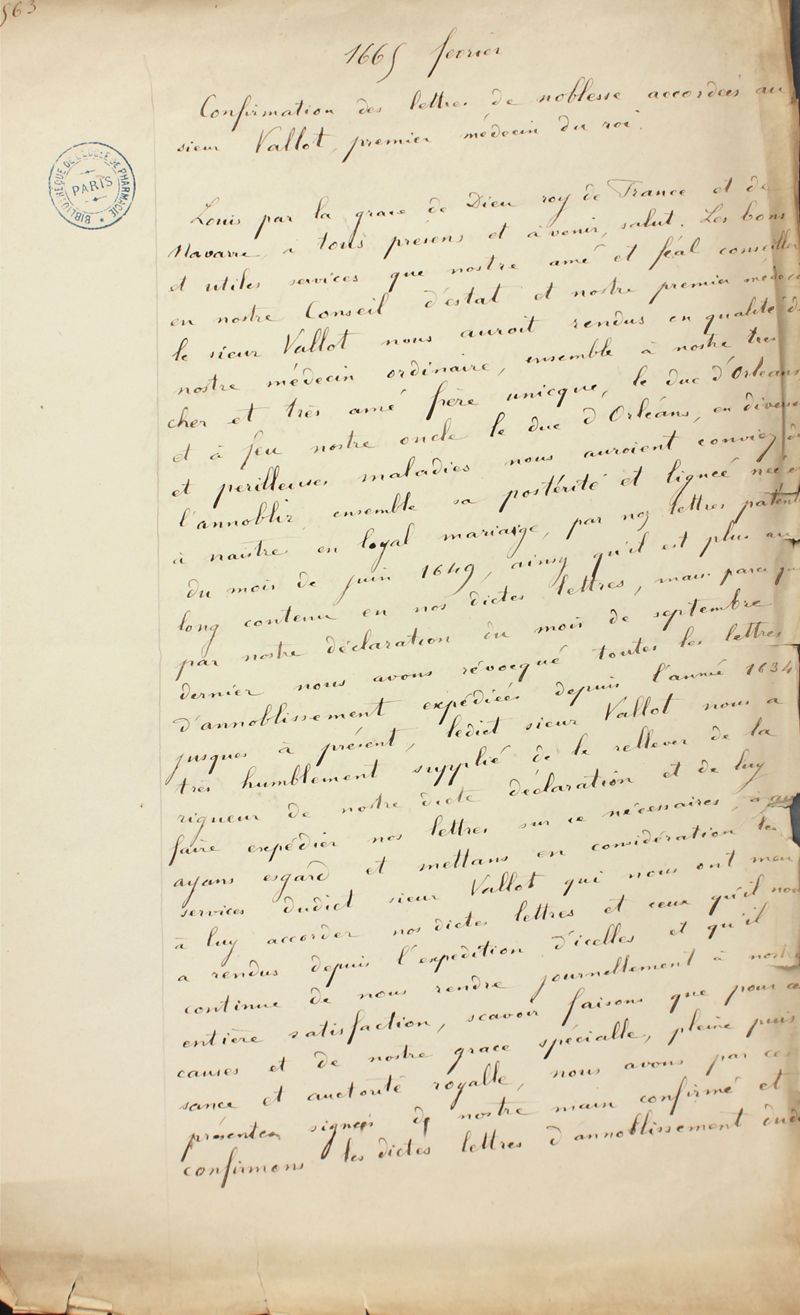 563
1665 fevrier
Confirmation des lettres de noblesse accordées au
sieur Vallot, premier médecin du roi.
BIBLIOTHEQUE DE L'ECOLE DE PHARMACIE
PARIS
Louis par la grace de Dieu roy de France et de
Navarre à tous présens et à venir, salut. Les bons
et utiles services que nostre amé et féal conseiller
en nostre Conseil d'estat et nostre premier médeci
le sieur Vallot nous auroit rendus en qualité d
nostre médecin ordinaire, ensemble à nostre tres
cher et très amé frère unicque, le duc d'Orleans
et à feu nostre oncle le duc d'Orléans, en diverse
et perilleuses maladies nous auroient conviez d
l'annoblir ensemble sa postérité et lignée née
à naistre en loyal mariaige, par noz lettres patent
du mois de juin 1649, ainsy qu'il est plus au
long contenu en nos dictes lettres, mais parce
par nostre déclaration du mois de septembre
dernier nous avons révocqué toutes les lettres
d'annoblissement expédiées depuis l'année 1634
jusques à présent, ledict sieur Vallot nous a
tres humblement supplié de le rellever de la
rigueur de nostre dicte déclaration et de luy
faire expédier nos lettres sur ce nécessaires, à
ayans esgard et mettans en considération les
services dudict sieur Vallot qui nous ont meu
à luy accorder nos dictes lettres et ceux qu'il nou
a rendus depuis l'expédition d'icelles et qu'il
continue de nous rendre journellement à nostre
entière satisfaction, scavoir faisons que pour ce
causes et de nostre grace spécialle, pleine puis
sance et auctorité royalle, nous avons par ces
présentes signées de nostre main confirmé et
confirmons les dictes lettres d'annoblissement dud